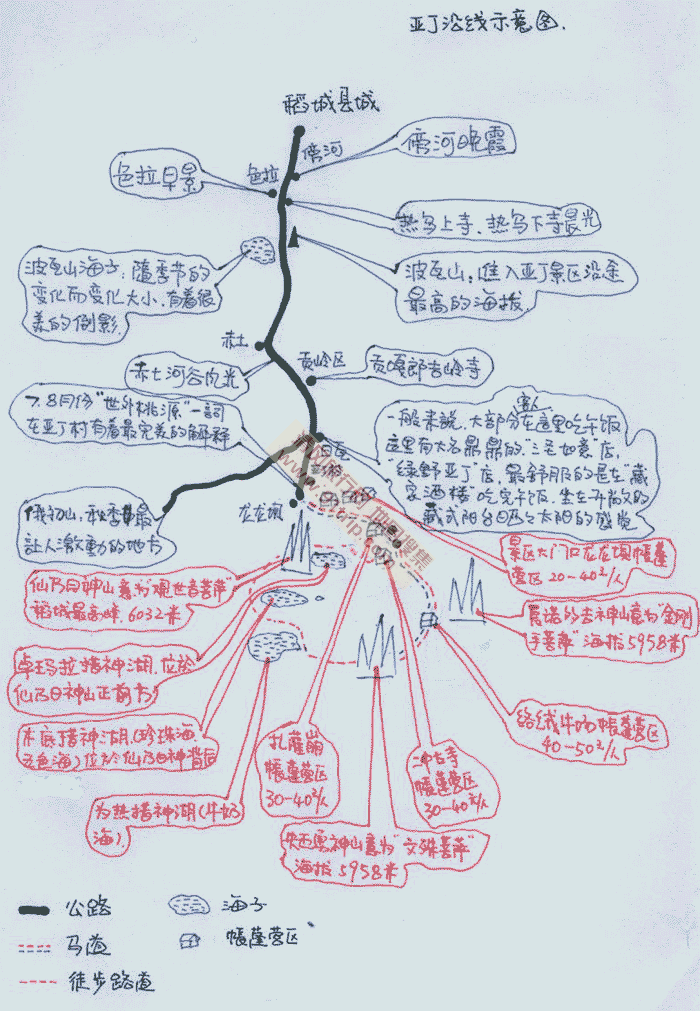 亚丁沿线示意图.
稻城县城
傍河
傍河晚霞
色拉
色拉早景
热乌上寺、热乌下寺晨光
波瓦山海子:随季节的
变化而变化大小,有着很
美的倒影.
波瓦山:进入亚丁景区沿途
最高的海拔.
赤土
贡岭区
赤土河谷肉光
贡嘎郎吉岭寺
7、8月份"世外桃源"一词
在亚丁村有着最完美的解释
客人
一般来说,大部分在这里吃午饭
这里有大名鼎鼎的"三宅如意"店,
绿野亚丁店,最舒服的是在"藏
家酒楼"吃完午饭,坐在开放的
藏式阳台晒太阳的感觉
日瓦
俄初山,秋季最
让人激動的地方
龙龙坝
景区大门口龙龙坝帳蓬
营区20-40元/人
仙乃日神山意为"观世音菩萨"
稻城最高峰,6032米
夏诺多吉神山意为"金刚
手菩萨"海拔5958米
卓玛拉措神湖,位於
仙乃日神山正前方
络绒牛场帳蓬营区
40-50元/人
木底措神湖(珍珠海
五色海)位於仙乃日神背后
扎灌崩
帳蓬营区
30-40元/人
冲古寺
帳蓬营区
30-40元/人
为热措神湖(牛奶
海).
央迈勇神山意为"文殊菩萨"
海拔5958米
公路
海子
马道
帳蓬营区
徒步路道